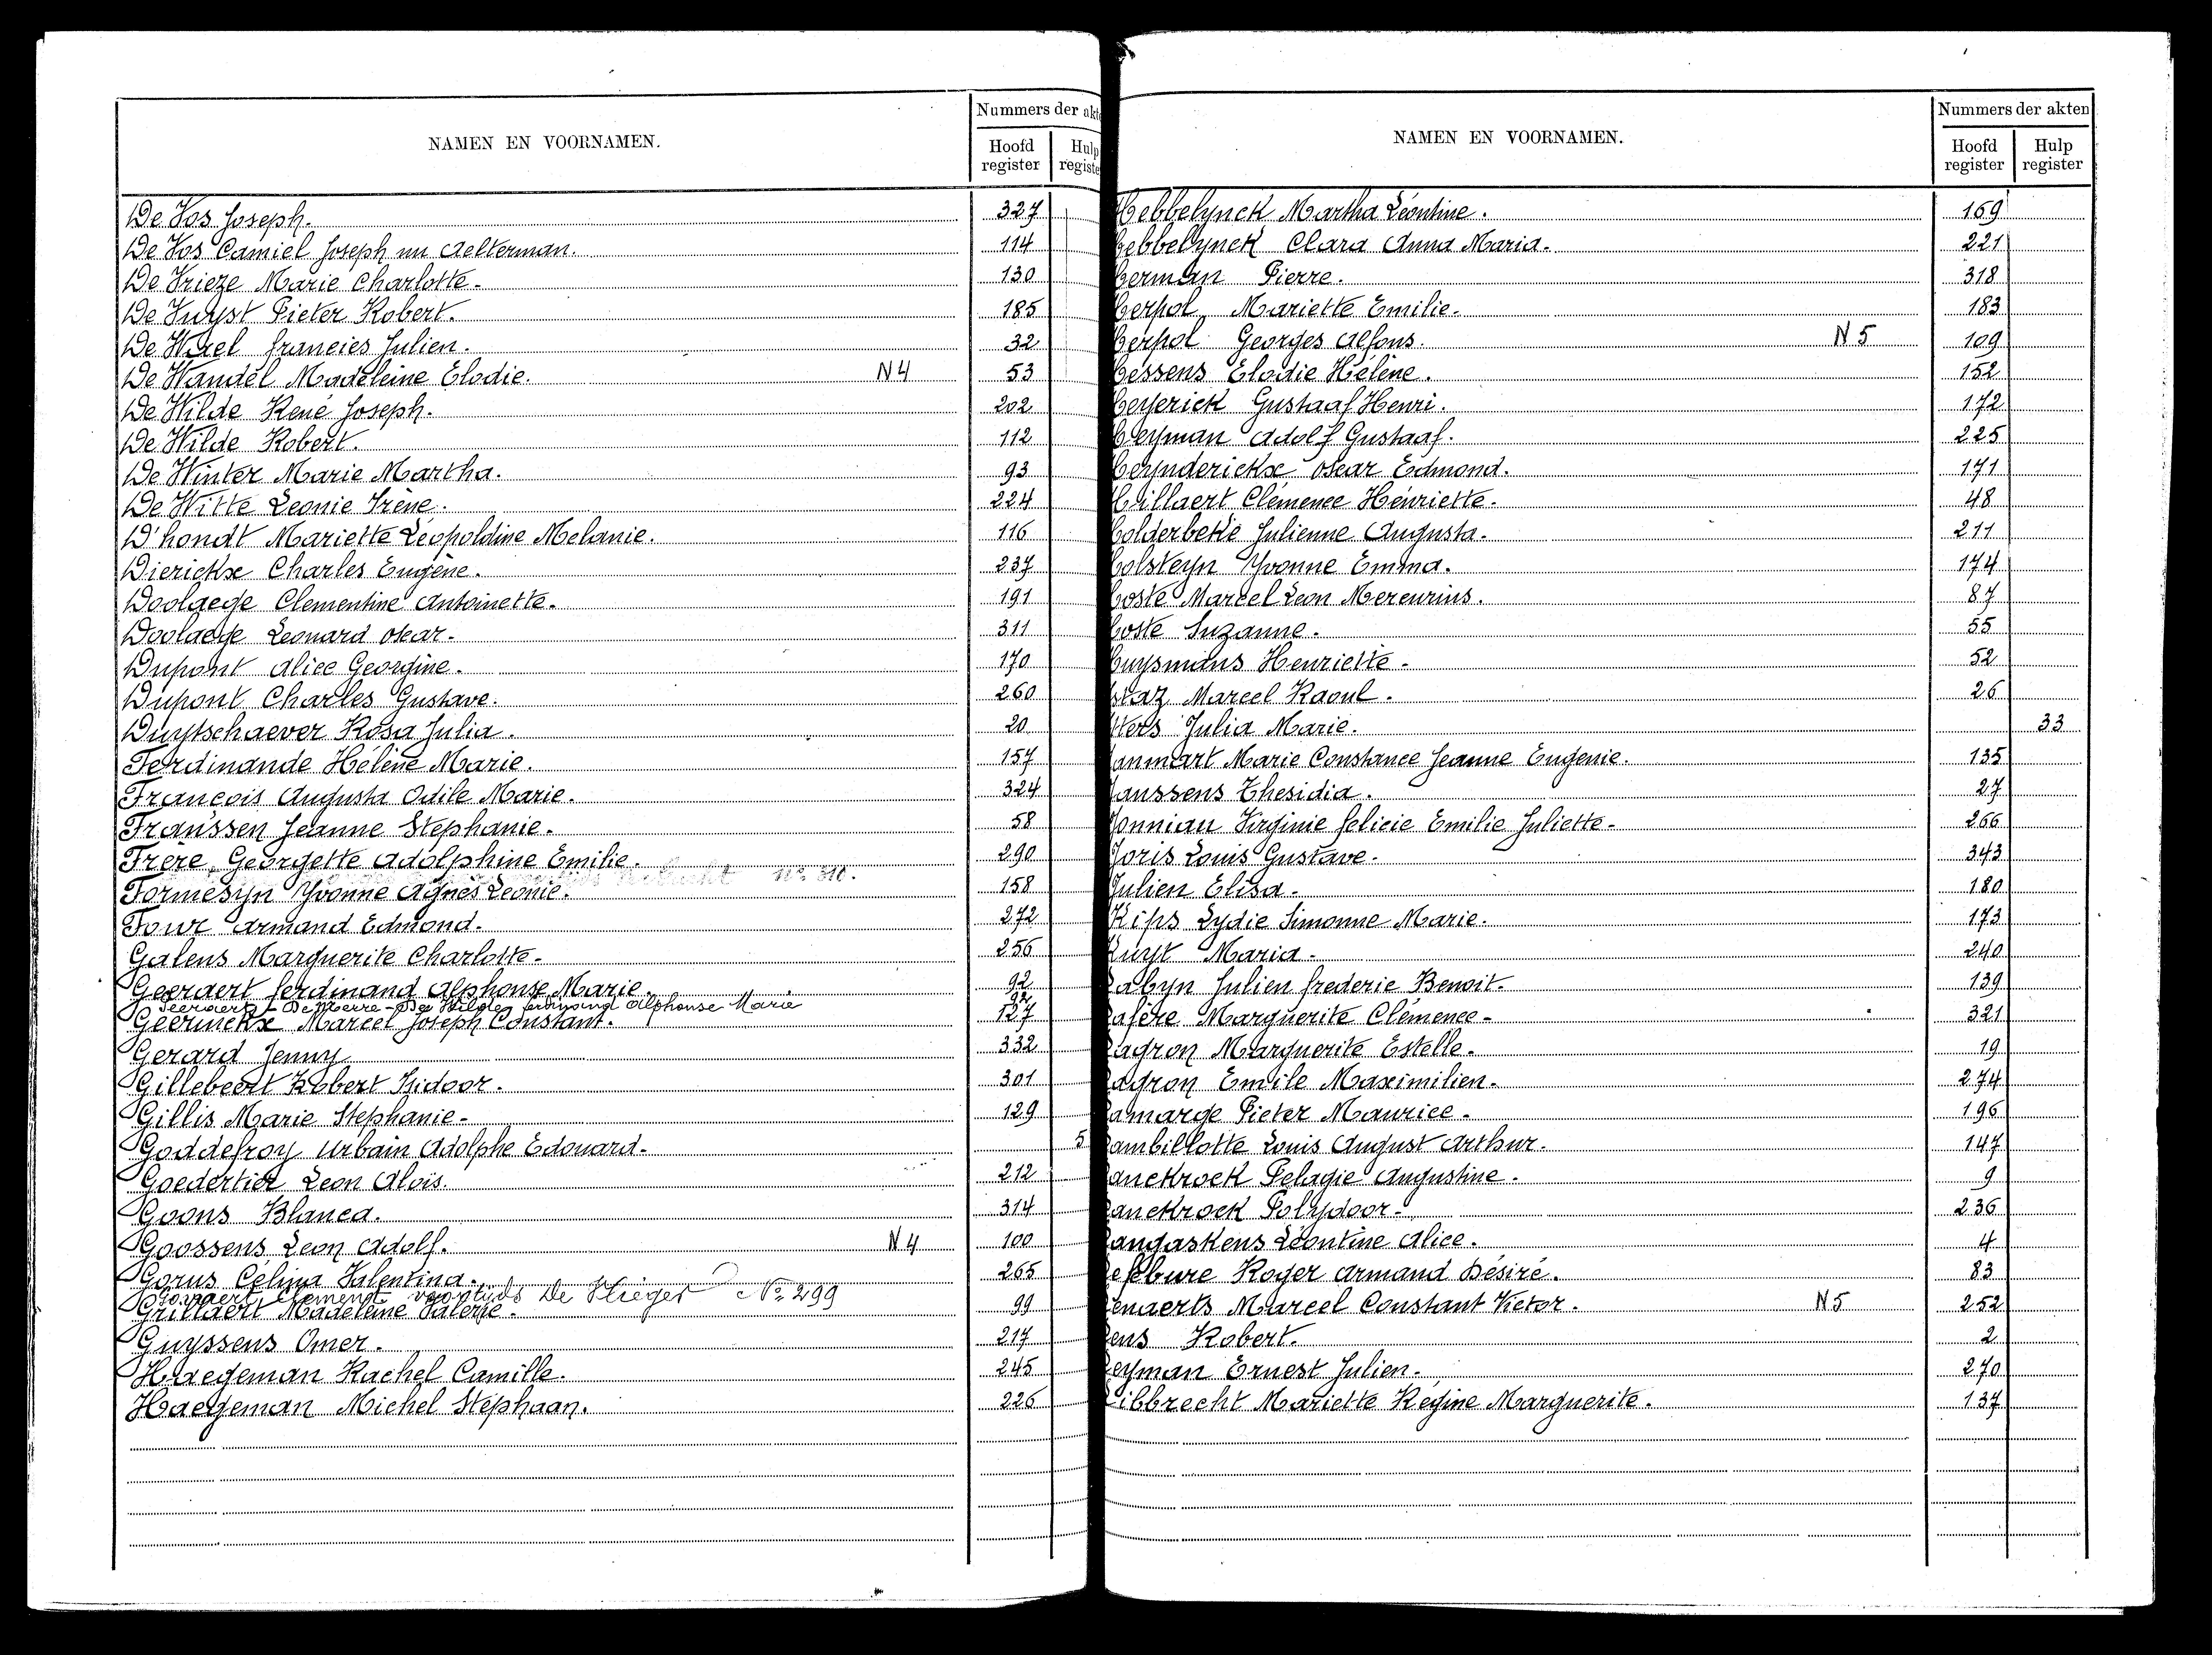 NAMEN EN VOORNAMEN.
Nummers der akt
Hoofd register
Hulp registe
De Vos Joseph. 327
De Vos Camiel Joseph nu Aelterman. 114
De Vrieze Marie Charlotte. 130
De Vuyst Pieter Robert. 185
De Wael Francies Julien. 32
De Wandel Madeleine Elodie. N4 53
De Wilde René Joseph. 202
De Wilde Robert. 112
De Winter Marie Martha. 93
De Witte Leonie Irène. 224
D'hondt Mariette Léopoldine Melanie. 116
Dierickx Charles Eugène. 237
Doolaege Clementine Antoinette. 191
Doolaege Leonard Oscar. 311
Dupont Alice Georgine. 170
Dupont Charles Gustave. 260
Duytschaever Rosa Julia. 20
Ferdinande Hélène Marie. 157
François Augusta Odile Marie. 324
Franssen Jeanne Stephanie. 58
Frere, Georgette Adolphine Emilie. 290
No 310.
Formesyn Yvonne Agnès Leonie. 158
Four Armand Edmond. 272
Galens Marguerite Charlotte. 256
Geeraert Ferdinand Alphonse Marie. 92
Alphonse Marie 92
Geerinckx Marcel Joseph Constant. 127
Gerard Jenny 332
Gillebeert Robert Isidoor. 301
Gillis Marie Stephanie. 129
Goddefroy Urbain Adolphe Edouard. 5
Goedertier Leon Aloïs. 212
Goons Blanca. 314
Goossens Leon Adolf. N4 100
Gorus Célina Valentina. 265
Clement voortijds De Vlieger No 299
Grillaert Madeleine Valerie. 99
Guyssens Omer. 217
Haegeman Rachel Camille. 245
Haegeman Michel Stephaan. 226
NAMEN EN VOORNAMEN.
Nummers der akten
Hoofd register
Hulp register
Hebbelynck Martha Léontine. 169
Hebbelynck Clara Anna Maria. 221
Herman Pierre. 318
Herpol, Mariette Emilie. 183
Herpol Georges Alfons. N5 109
Hessens Elodie Hélène. 152
Heyerick Gustaaf Henri. 172
Heyman Adolf Gustaaf. 225
Heynderickx Oscar Edmond. 171
Hillaert Clémence Henriette. 48
Holderbeke Julienne Augusta. 211
Holsteyn Yvonne Emma. 174
Hoste Marcel Leon Mercurius. 87
Hoste Suzanne. 55
Huysmans Henriette. 52
Marcel Raoul. 26
Julia Marie. 33
Janmart Marie Constance Jeanne Eugenie. 135
Janssens Thesidia. 27
Jonniau Virginie Felicie Emilie Juliette. 266
Joris Louis Gustave. 343
Julien Elisa. 180
Kips Lydie Simonne Marie. 173
Kuyt Maria. 240
Labyn Julien Frederic Benoit. 139
Lafère Marguerite Clémence. 321
Lagron Marguerite Estelle. 19
Lagron Emile Maximilien. 274
Lamarge Pieter Maurice. 196
Lambillotte Louis August Arthur. 147
Lanckrock Pelagie Augustine. 9
Lanckrock Polydoor. 236
Langaskens Léontine Alice. 4
Lefebure Roger Armand Désiré. 83
Lenaerts Marcel Constant Victor. N5 252
Lens Robert. 2
Leyman Ernest Julien. 270
Libbrecht Mariette Régine Marguerite. 137